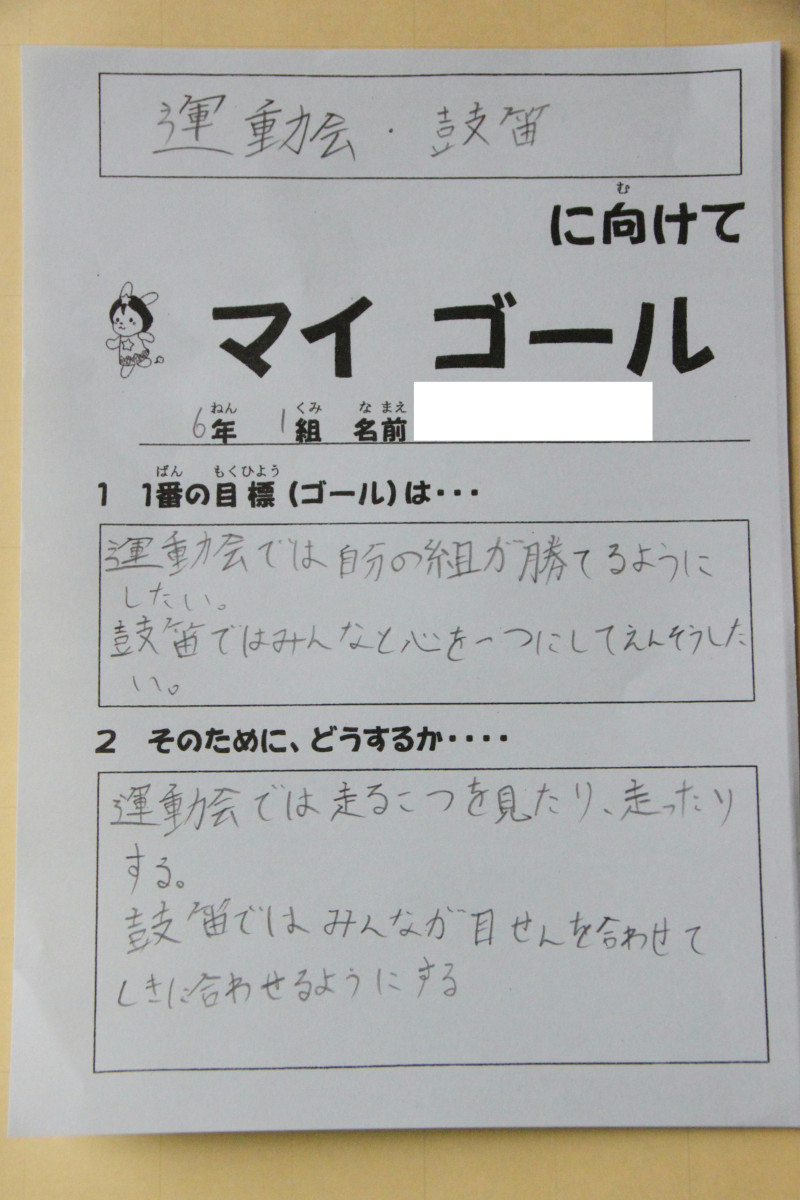 運動会・鼓笛
に向けて
マイ ゴール
6年 1組 名前
1 1番の目標(ゴール)は・・・
運動会では自分の組が勝てるように
したい。
鼓笛ではみんなと心を一つにしてえんそうした
い。
2 そのために、どうするか・・・・
運動会では走るこつを見たり、走ったり
する。
鼓笛ではみんなが目せんを合わせて
しきに合わせるようにする